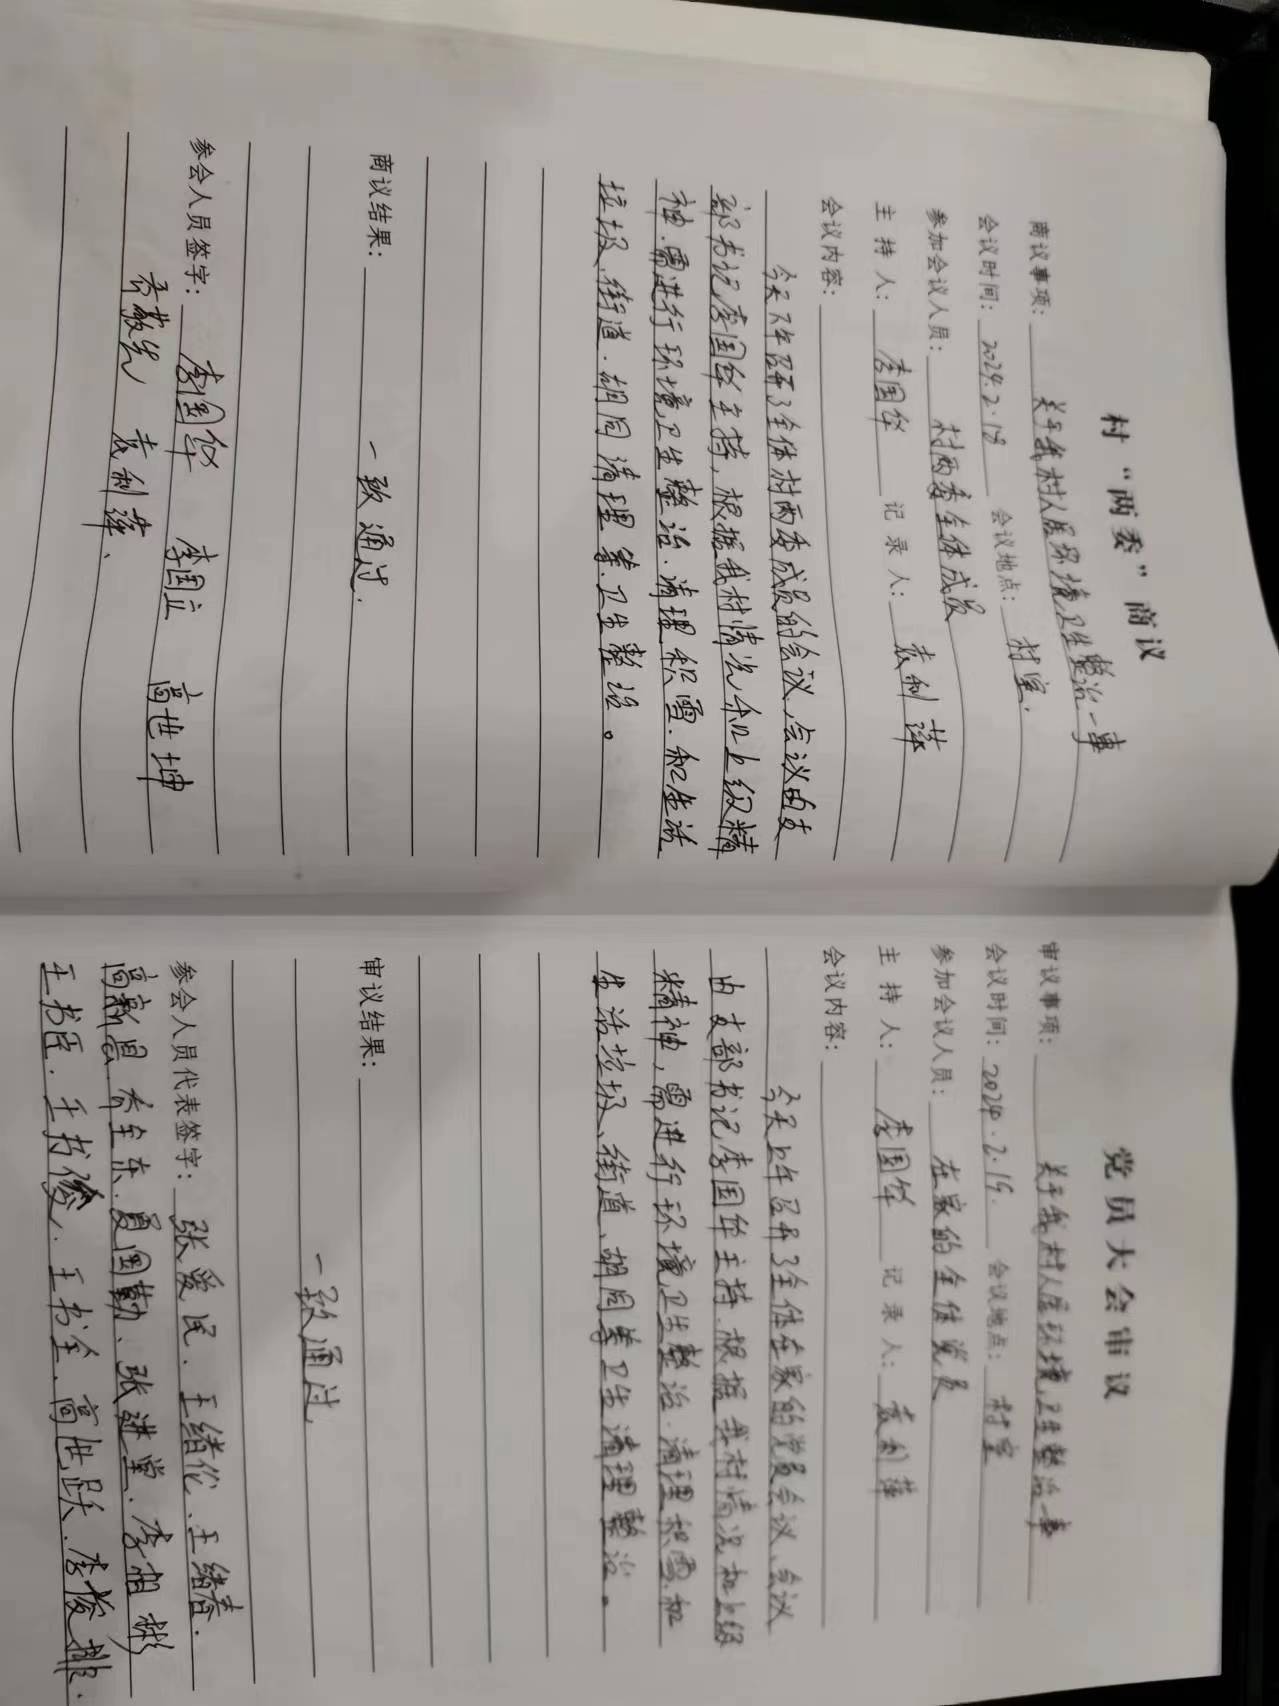 村“两委”商议
商议事项：关于我村人居环境卫生整治一事
会议时间：2024.2.18 会议地点：村室.
参加会议人员：村两委全体成员
主持人：李国华 记录人：袁利萍
会议内容：
今天下午召开了全体村两委成员的会议,会议由支
部书记李国华主持,根据我村情况和上级精
神.需进行环境卫生整治.清理积雪.和生活
垃圾.街道.胡同清理等卫生整治。
商议结果：
一致通过.
参会人员签字：李国华 李国立 高世坤
乔敬先 袁利萍、
党员大会审议
审议事项：关于我村人居环境卫生整治一事
会议时间：2024.2.19. 会议地点：村室
参加会议人员：在家的全体党员
主持人：李国华 记录人：袁利萍
会议内容：
今天上午召开了全体在家的党员会议、会议
由支部书记李国华主持.根据我村情况和上级
精神,需进行环境卫生整治.清理积雪.和
生活垃圾、街道、胡同等卫生清理整治。
审议结果：
一致通过
参会人员代表签字：张爱民.王绪伦、王绪春.
高新 乔全东.国勤、张进堂.李相彬
王书臣.王书俊、王书全、高世跃.李俊排.